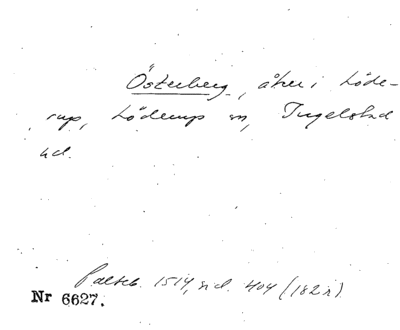 Österberg, åker i Löde-
rup, Löderups sn, Ingelstad
hd.
Palteb. 1514, sid. 404 (182 r).
Nr 6627.